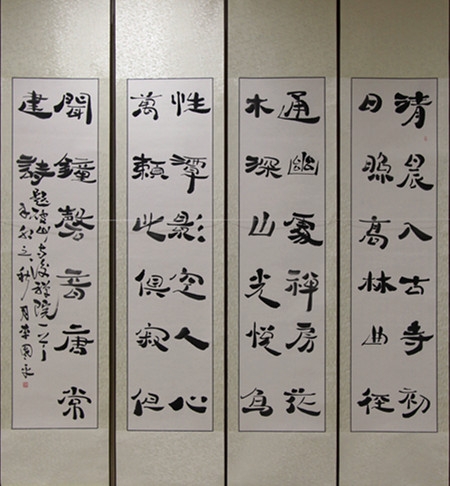 清晨入古寺初
日照高林曲徑
通幽處禪房花
木深山光悅鳥
性潭影空人心
萬籟此俱寂但
聞鐘磬音唐常
建詩
題破山寺後禪院一首
之秋月